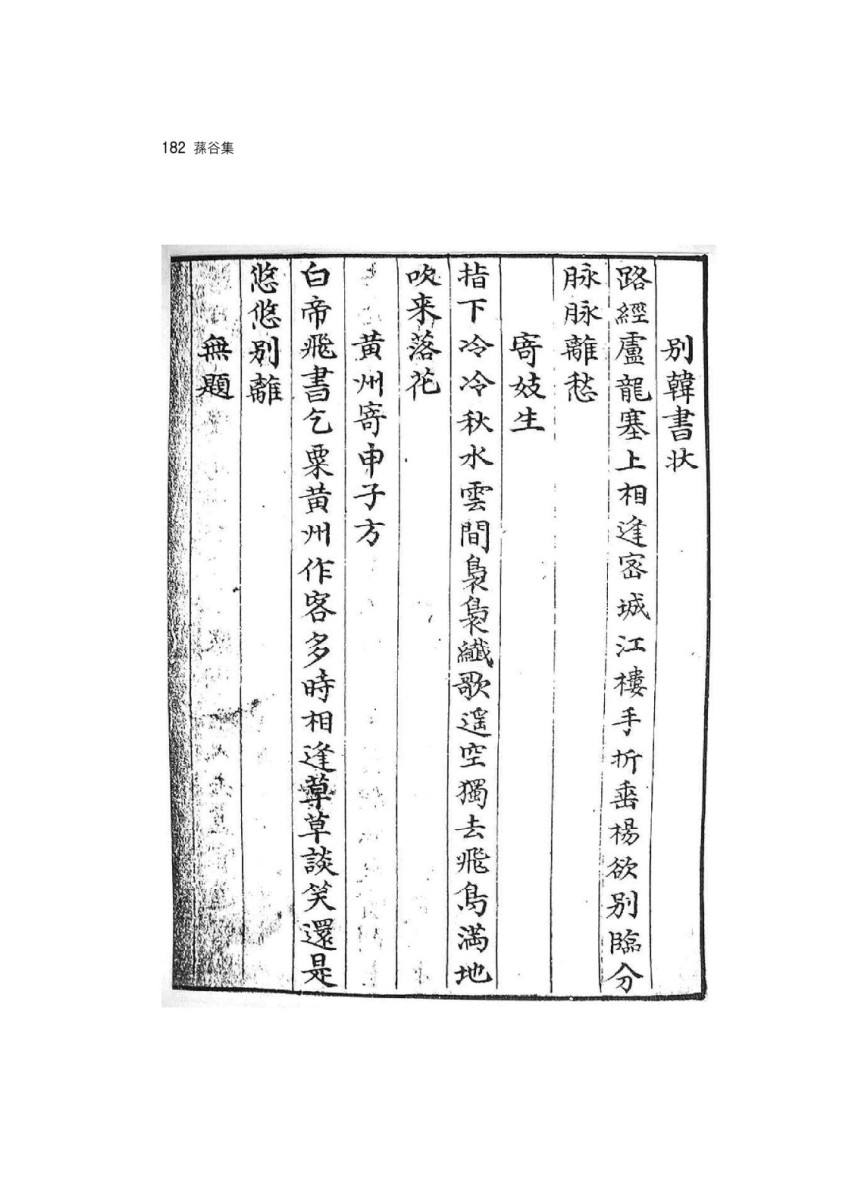 182 蓀谷集
別韓書狀
路經盧龍塞上相逢宻城江樓手折垂楊欲別臨分
脉脉離愁
寄妓生
指下冷冷秋水雲間裊裊纖歌遥空獨去飛鳥満地
吹来落花
黄州寄申子方
白帝飛書乞粟黄州作客多時相逢草草談笑還是
悠悠别離
無題